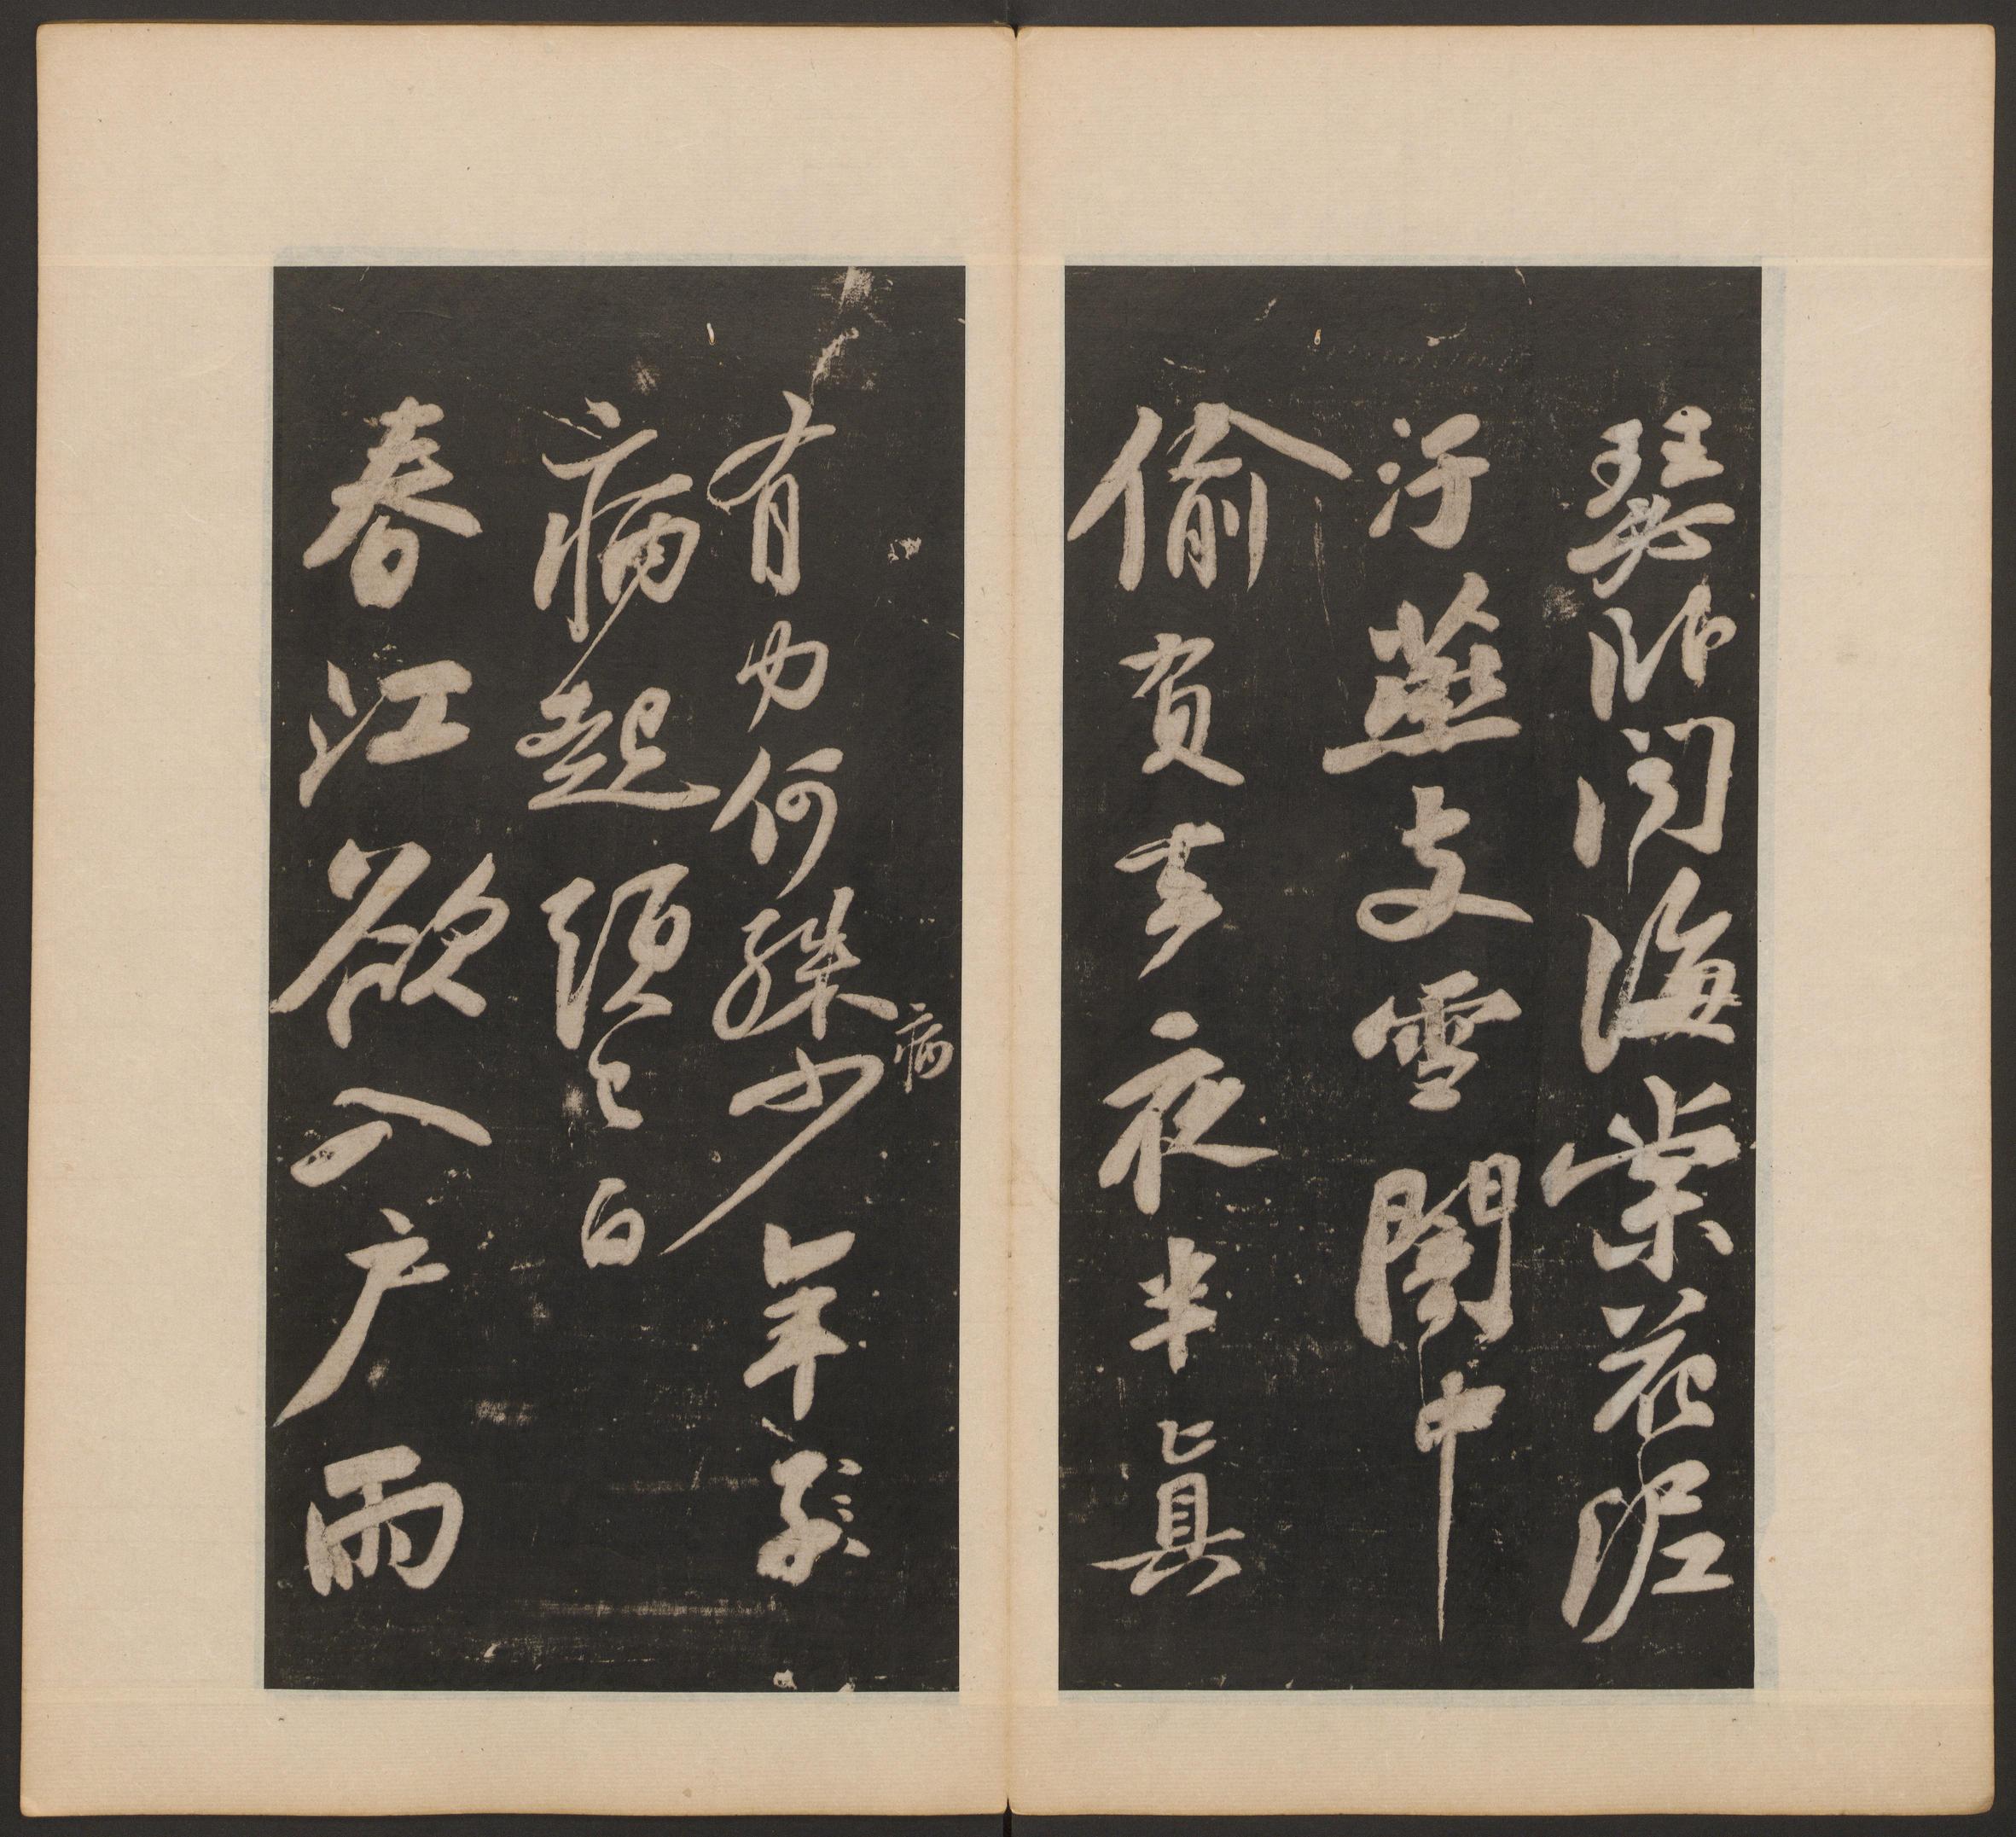 瑟卧聞海棠花泥
汙燕支雪闇中
偷負去夜半眞
有力何殊病少年子
病起頭已白
春江欲入戶雨